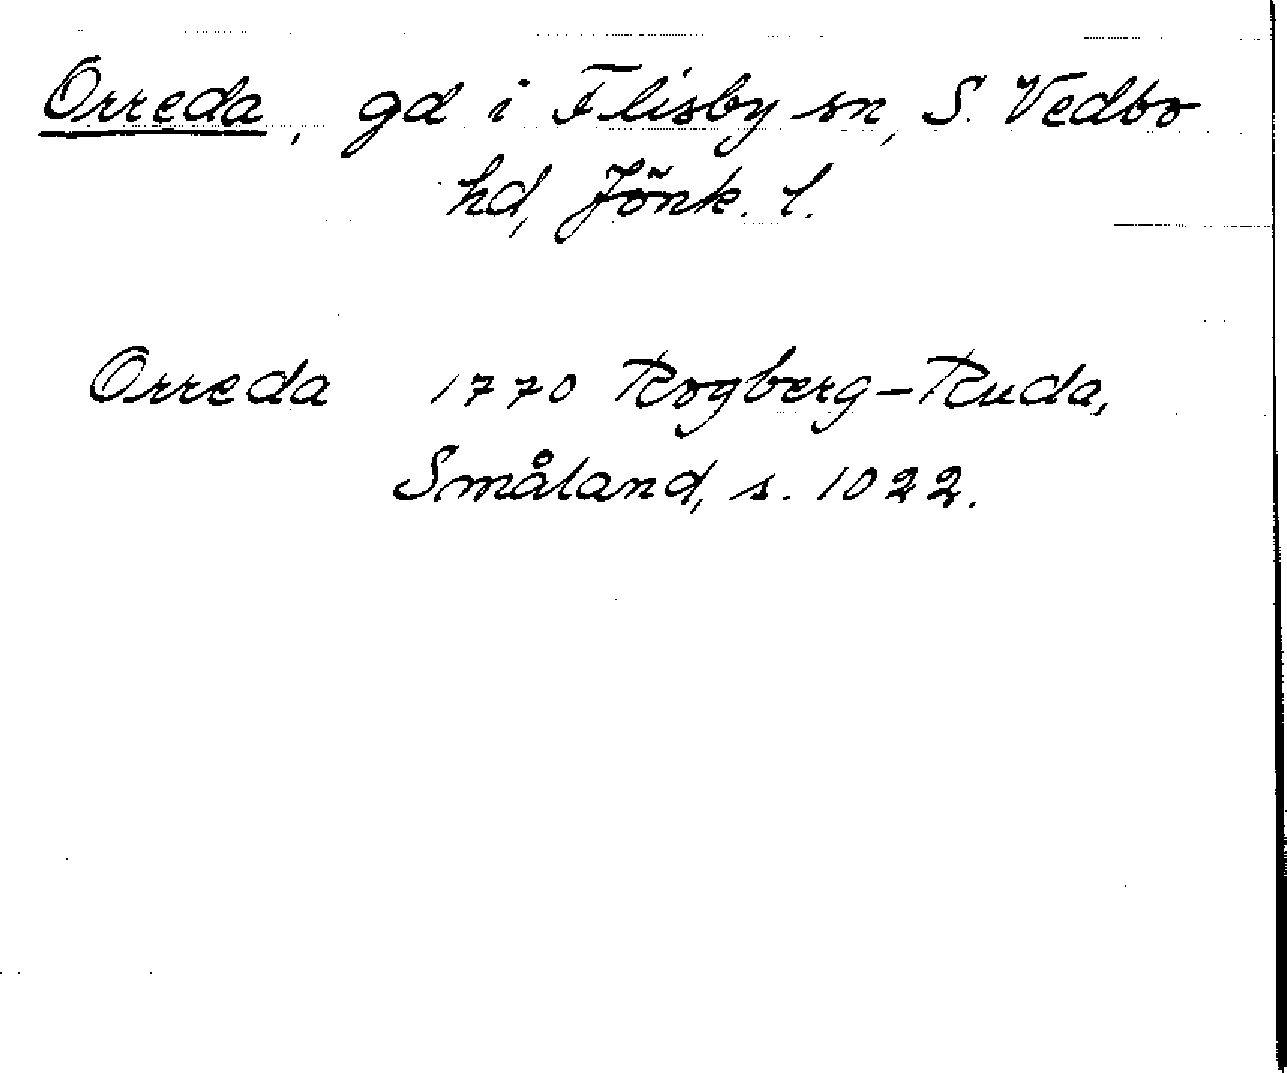 Orreda, gd i Flisby sn, S. Vedbo
hd, Jönk. l.
Orreda 1770 Rogberg-Ruda,
Småland, s. 1022.